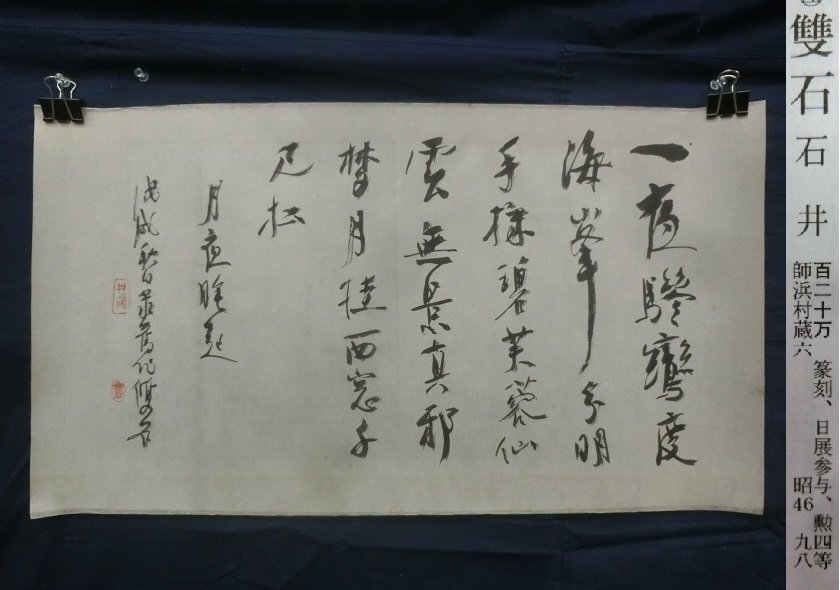 雙石 石井
百二十万 篆刻、日展参与、勲四等
師浜村蔵六 昭46 九八
一夜驂鸞度
海峯分明
手採碧芙蓉仙
雲無景真邪
夢月挂西窓千
尺松
月夜睡起
戊戌 舊作雙石